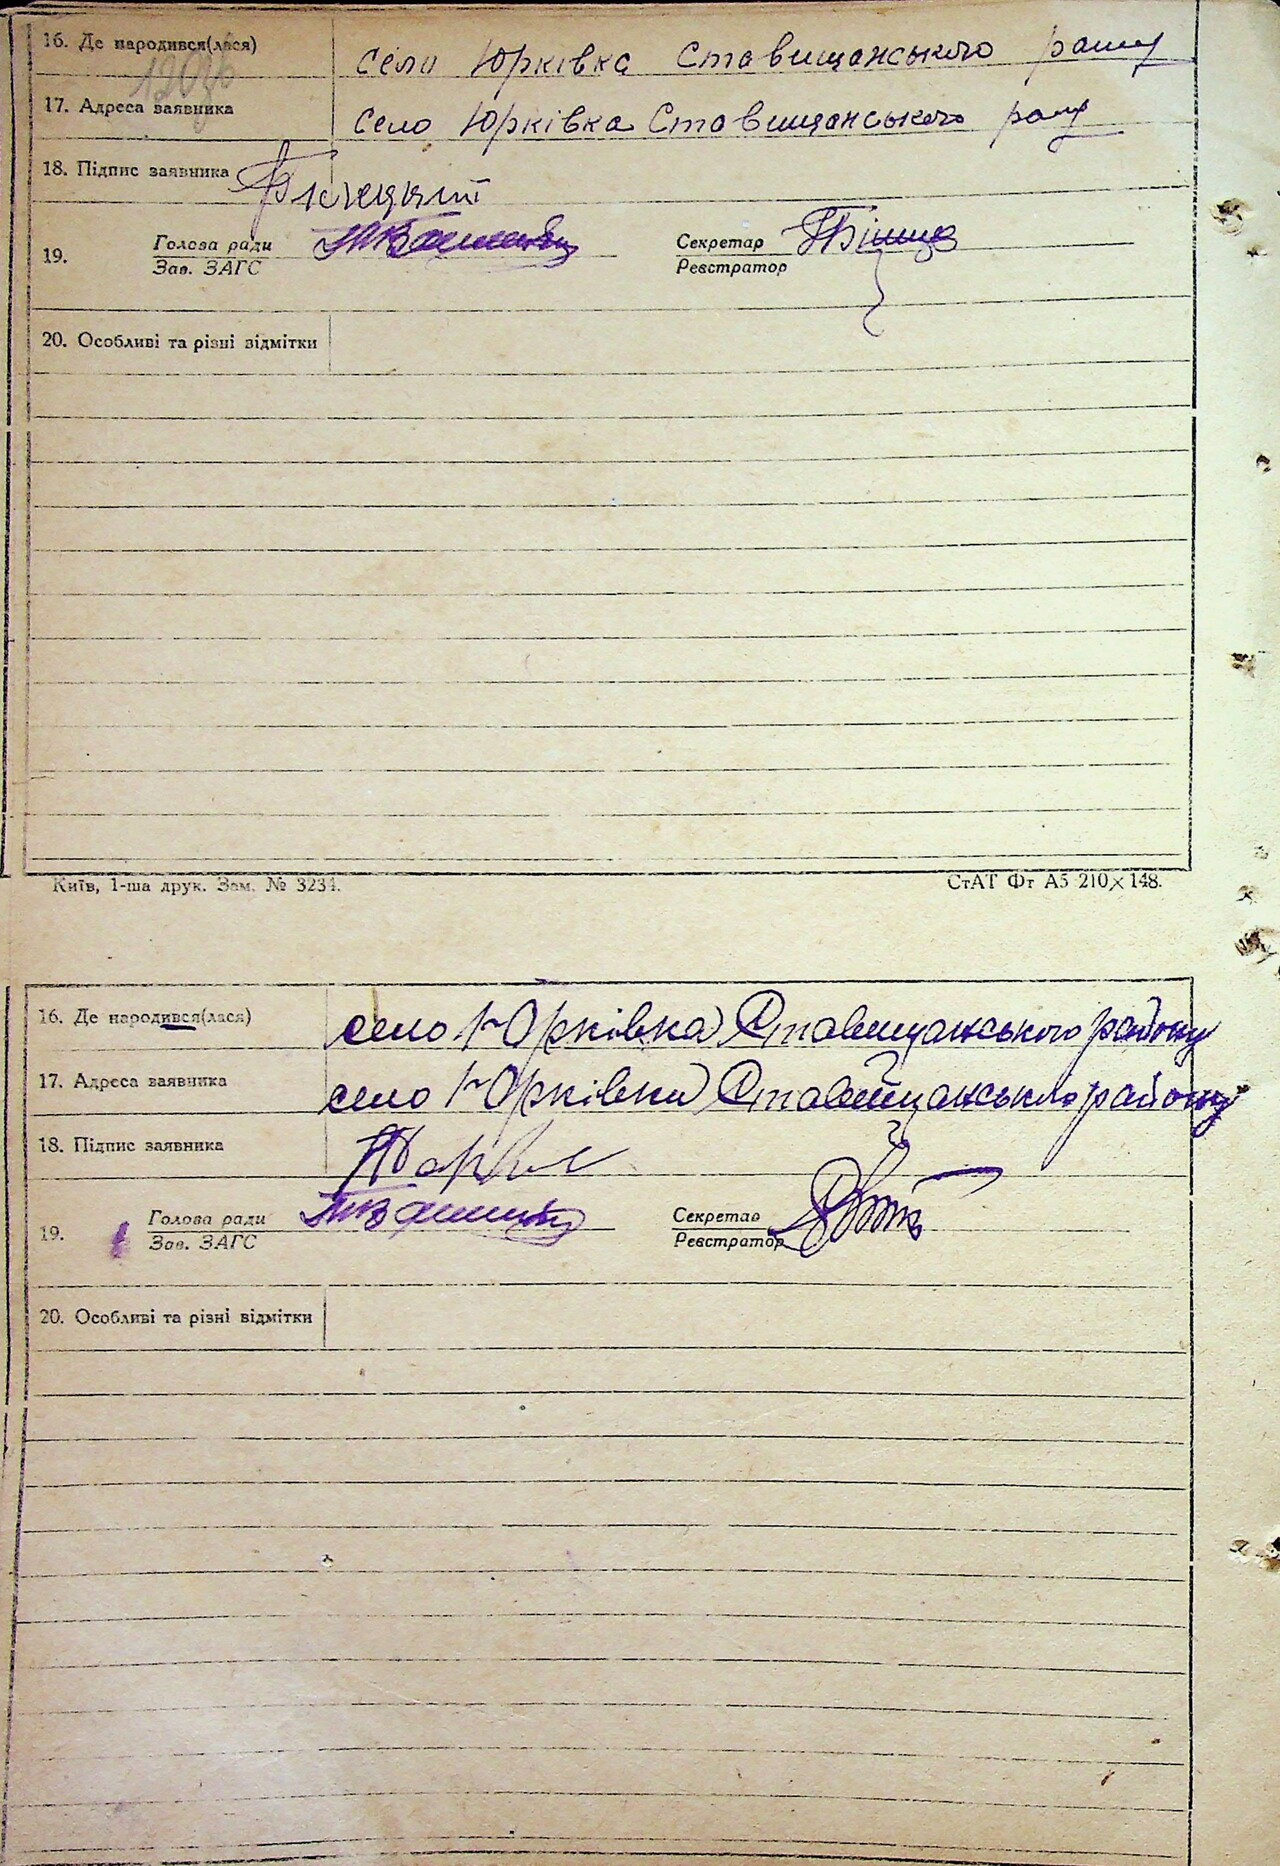 16. Де народився(лася) село Юрківка Ставищанського
17. Адреса заявника село Юрківка Ставищанського
18. Підпис заявника
19. Голова ради Секретар
Зав. ЗАГС Реєстратор
20. Особливі та різні відмітки
Київ, 1-ша друк. Зам. № 3234. СтАТ Фт А5 210×148.
16. Де народився(лася) село Юрківка Ставищанського району
17. Адреса заявника село Юрківка Ставищанського району
18. Підпис заявника
19. Голова ради Секретар
Зав. ЗАГС Реєстратор
20. Особливі та різні відмітки